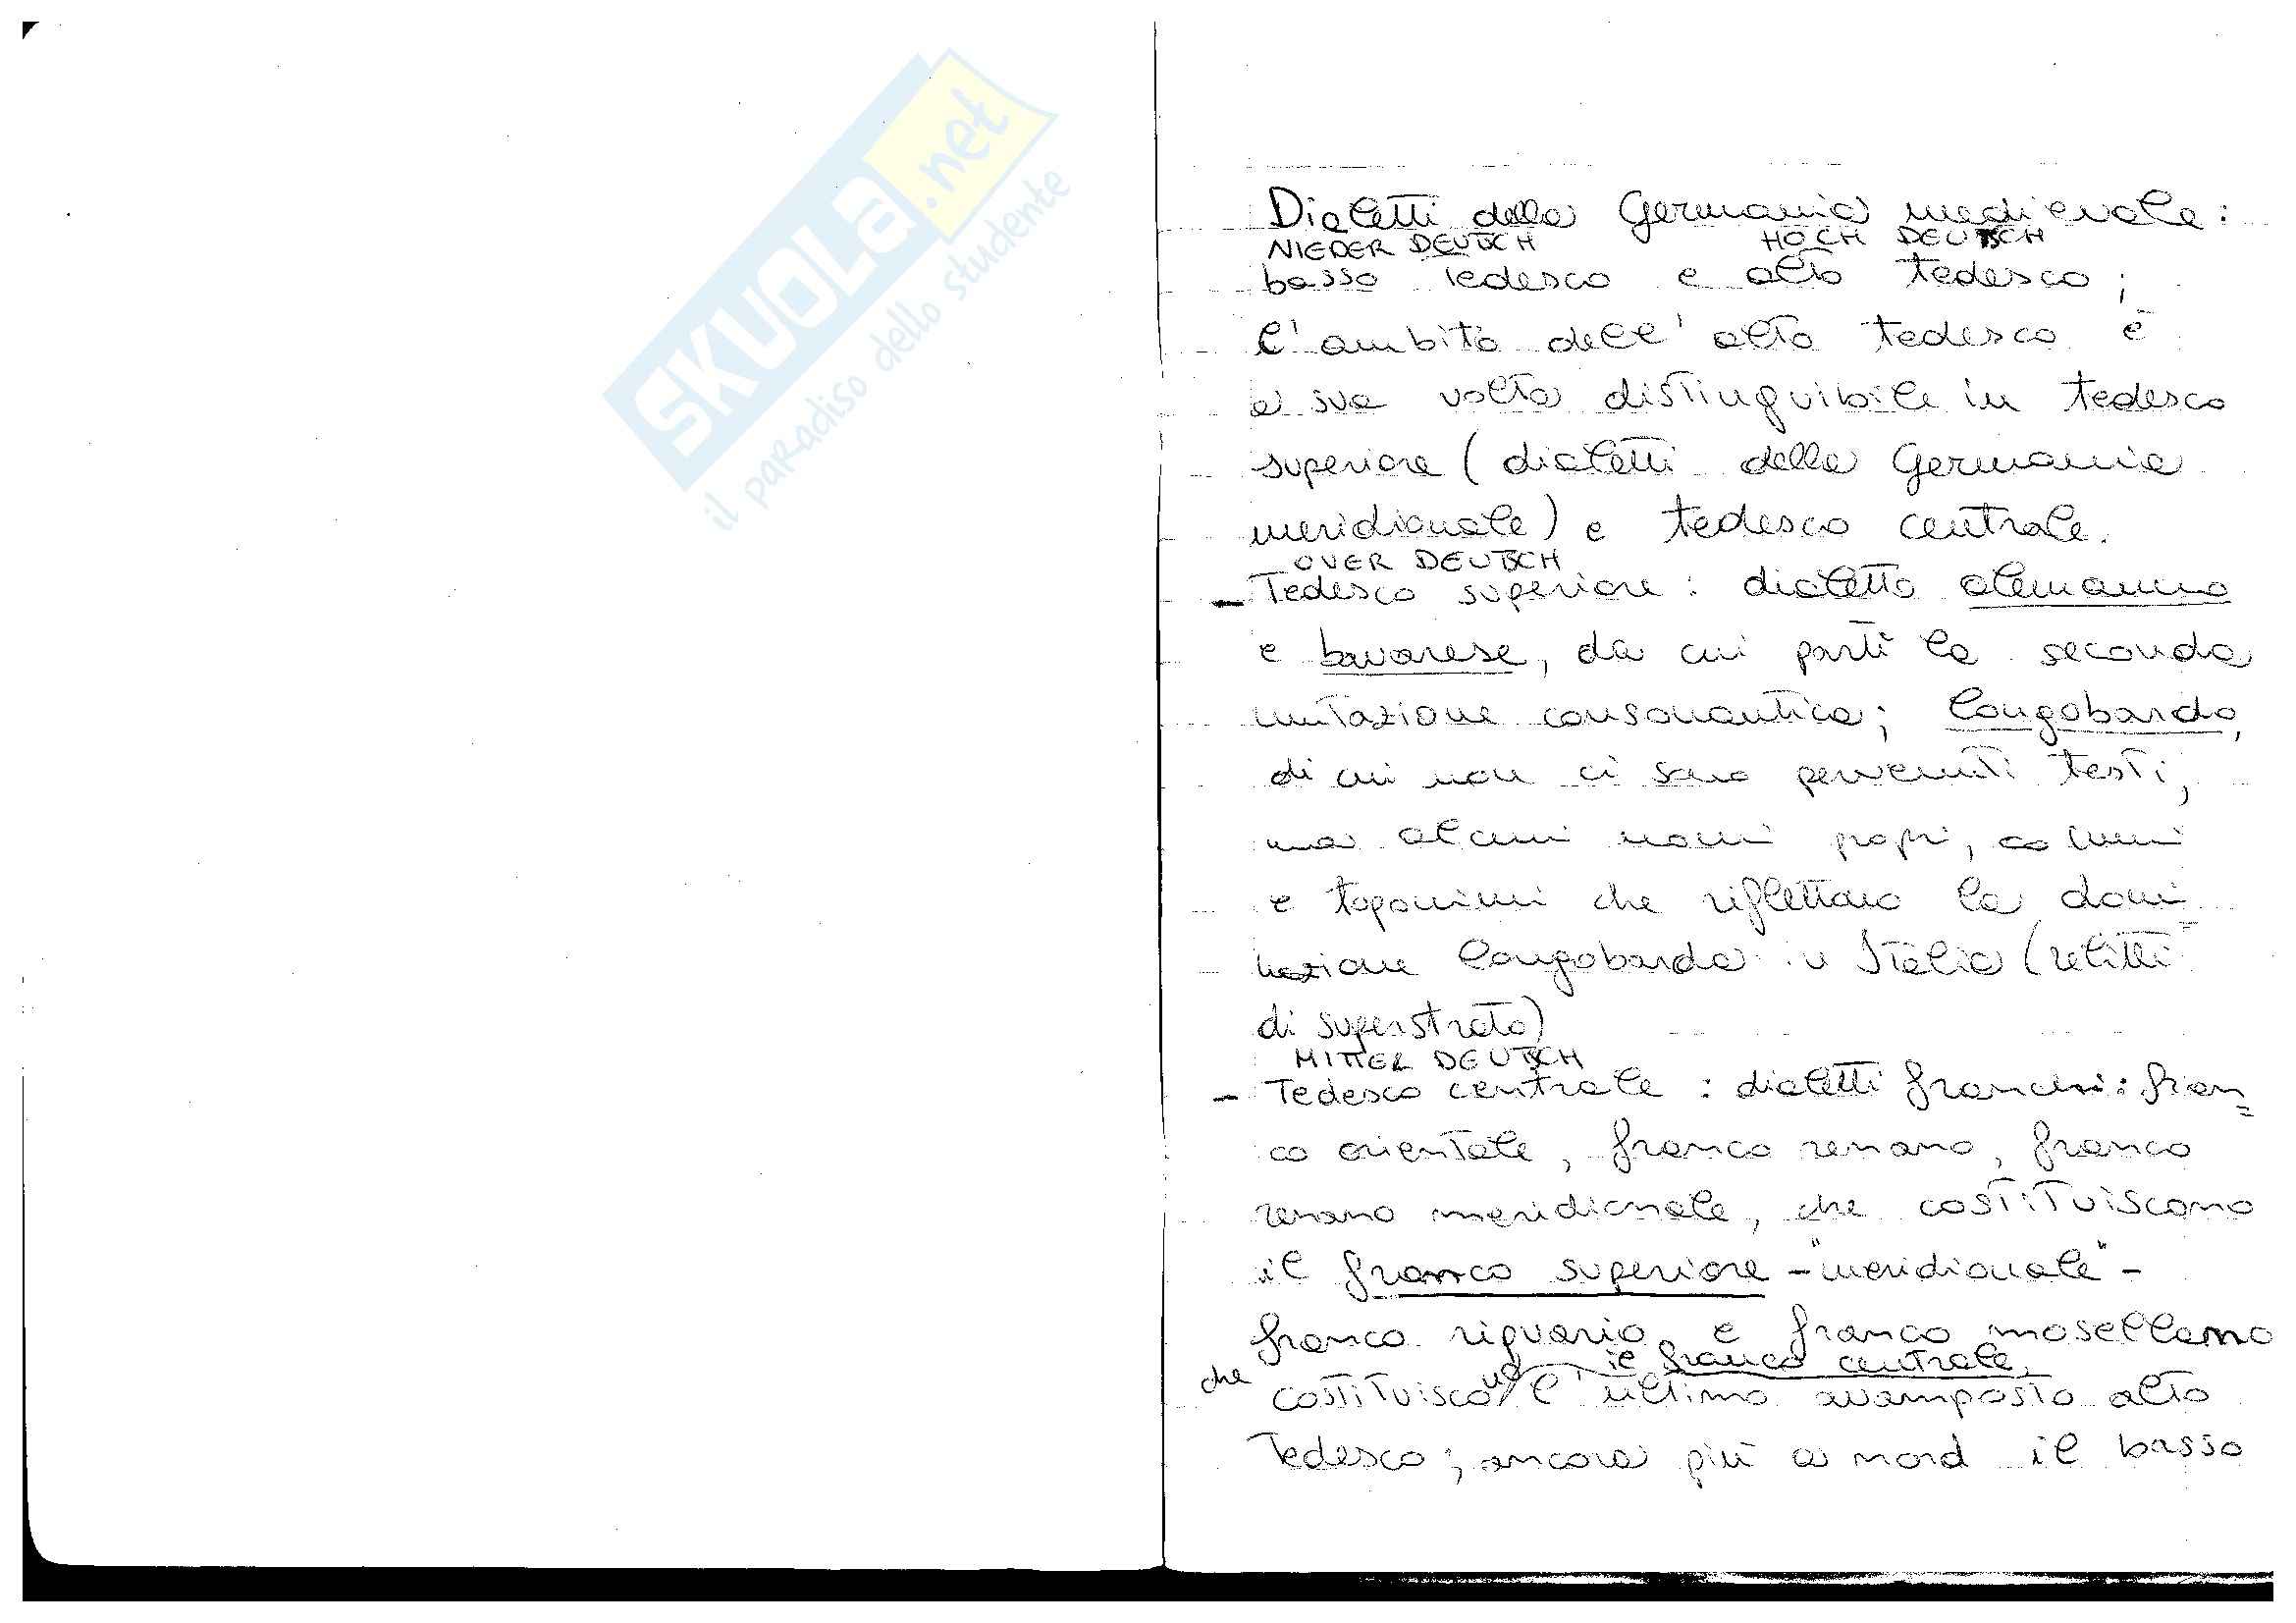 SKUOLA.net
il paradiso dello studente
Dialetti della Germania medievale:
NIEDER DEUTSCH HOCH DEUTSCH
basso tedesco e alto tedesco;
l'ambito dell'alto tedesco è
a sua volta distinguibile in tedesco
superiore (dialetti della Germania
meridionale) e tedesco centrale.
OVER DEUTSCH
- Tedesco superiore: dialetto alemanno
e bavarese, da cui partì la seconda
mutazione consonantica; longobardo,
di cui non ci sono pervenuti testi,
ma alcuni nomi propri, comuni
e toponimi che riflettono la domi=
nazione longobarda in Italia (relitti
di superstrato)
MITTEL DEUTSCH
- Tedesco centrale: dialetti franchi: fran=
co orientale, franco renano, franco
renano meridionale, che costituiscono
il franco superiore - "meridionale" -
franco ripuario e franco mosellano
che il franco centrale,
costituiscono l'ultimo avamposto alto
Tedesco; ancora più a nord il basso